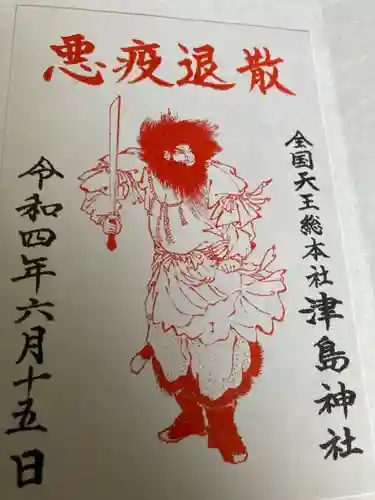 悪疫退散
全国天王総本社 津島神社
令和四年六月十五日